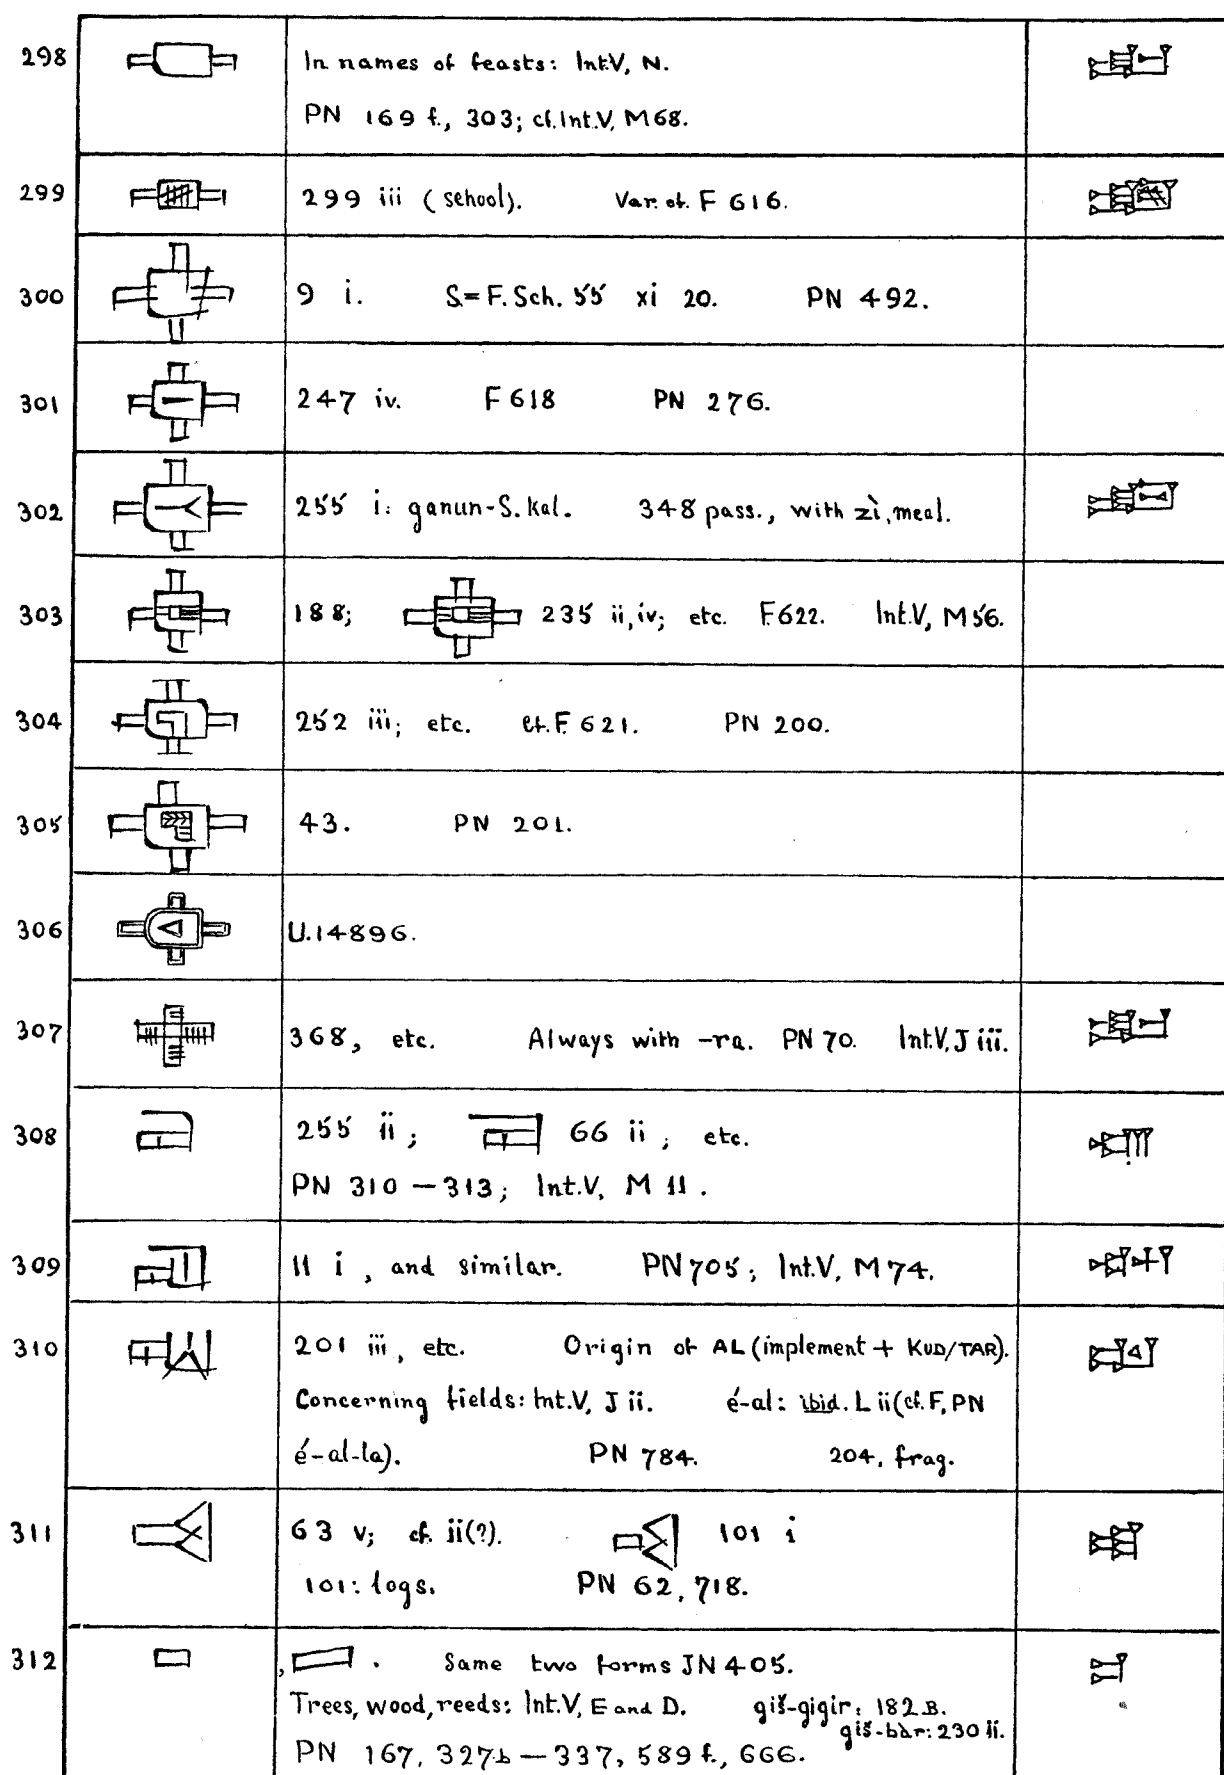 298 In names of feasts: Int.V, N.
PN 169 f., 303; cf. Int.V, M 68.
299 299 iii (school). Var. of. F 616.
300 9 i. S = F. Sch. 55 xi 20. PN 492.
301 247 iv. F 618 PN 276.
302 255 i: ganun-S. kal. 348 pass., with zì, meal.
303 188; 235 ii, iv; etc. F. 622. Int.V, M 56.
304 252 iii; etc. cf. F. 621. PN 200.
305 43. PN 201.
306 U.14896.
307 368, etc. Always with -ra. PN 70. Int.V, J iii.
308 255 ii; 66 ii; etc.
PN 310 – 313; Int.V, M 11.
309 11 i, and similar. PN 705; Int.V, M 74.
310 201 iii, etc. Origin of AL (implement + KUD/TAR).
Concerning fields: Int.V, J ii. é-al: ibid. L ii (cf. F, PN
é-al-la). PN 784. 204, frag.
311 63 v; cf. ii(?). 101 i
101: logs. PN 62, 718.
312 , . Same two forms JN 405.
Trees, wood, reeds: Int.V, E and D. giš-gigir: 182 B.
giš-bàr: 230 ii.
PN 167, 327b – 337, 589 f., 666.